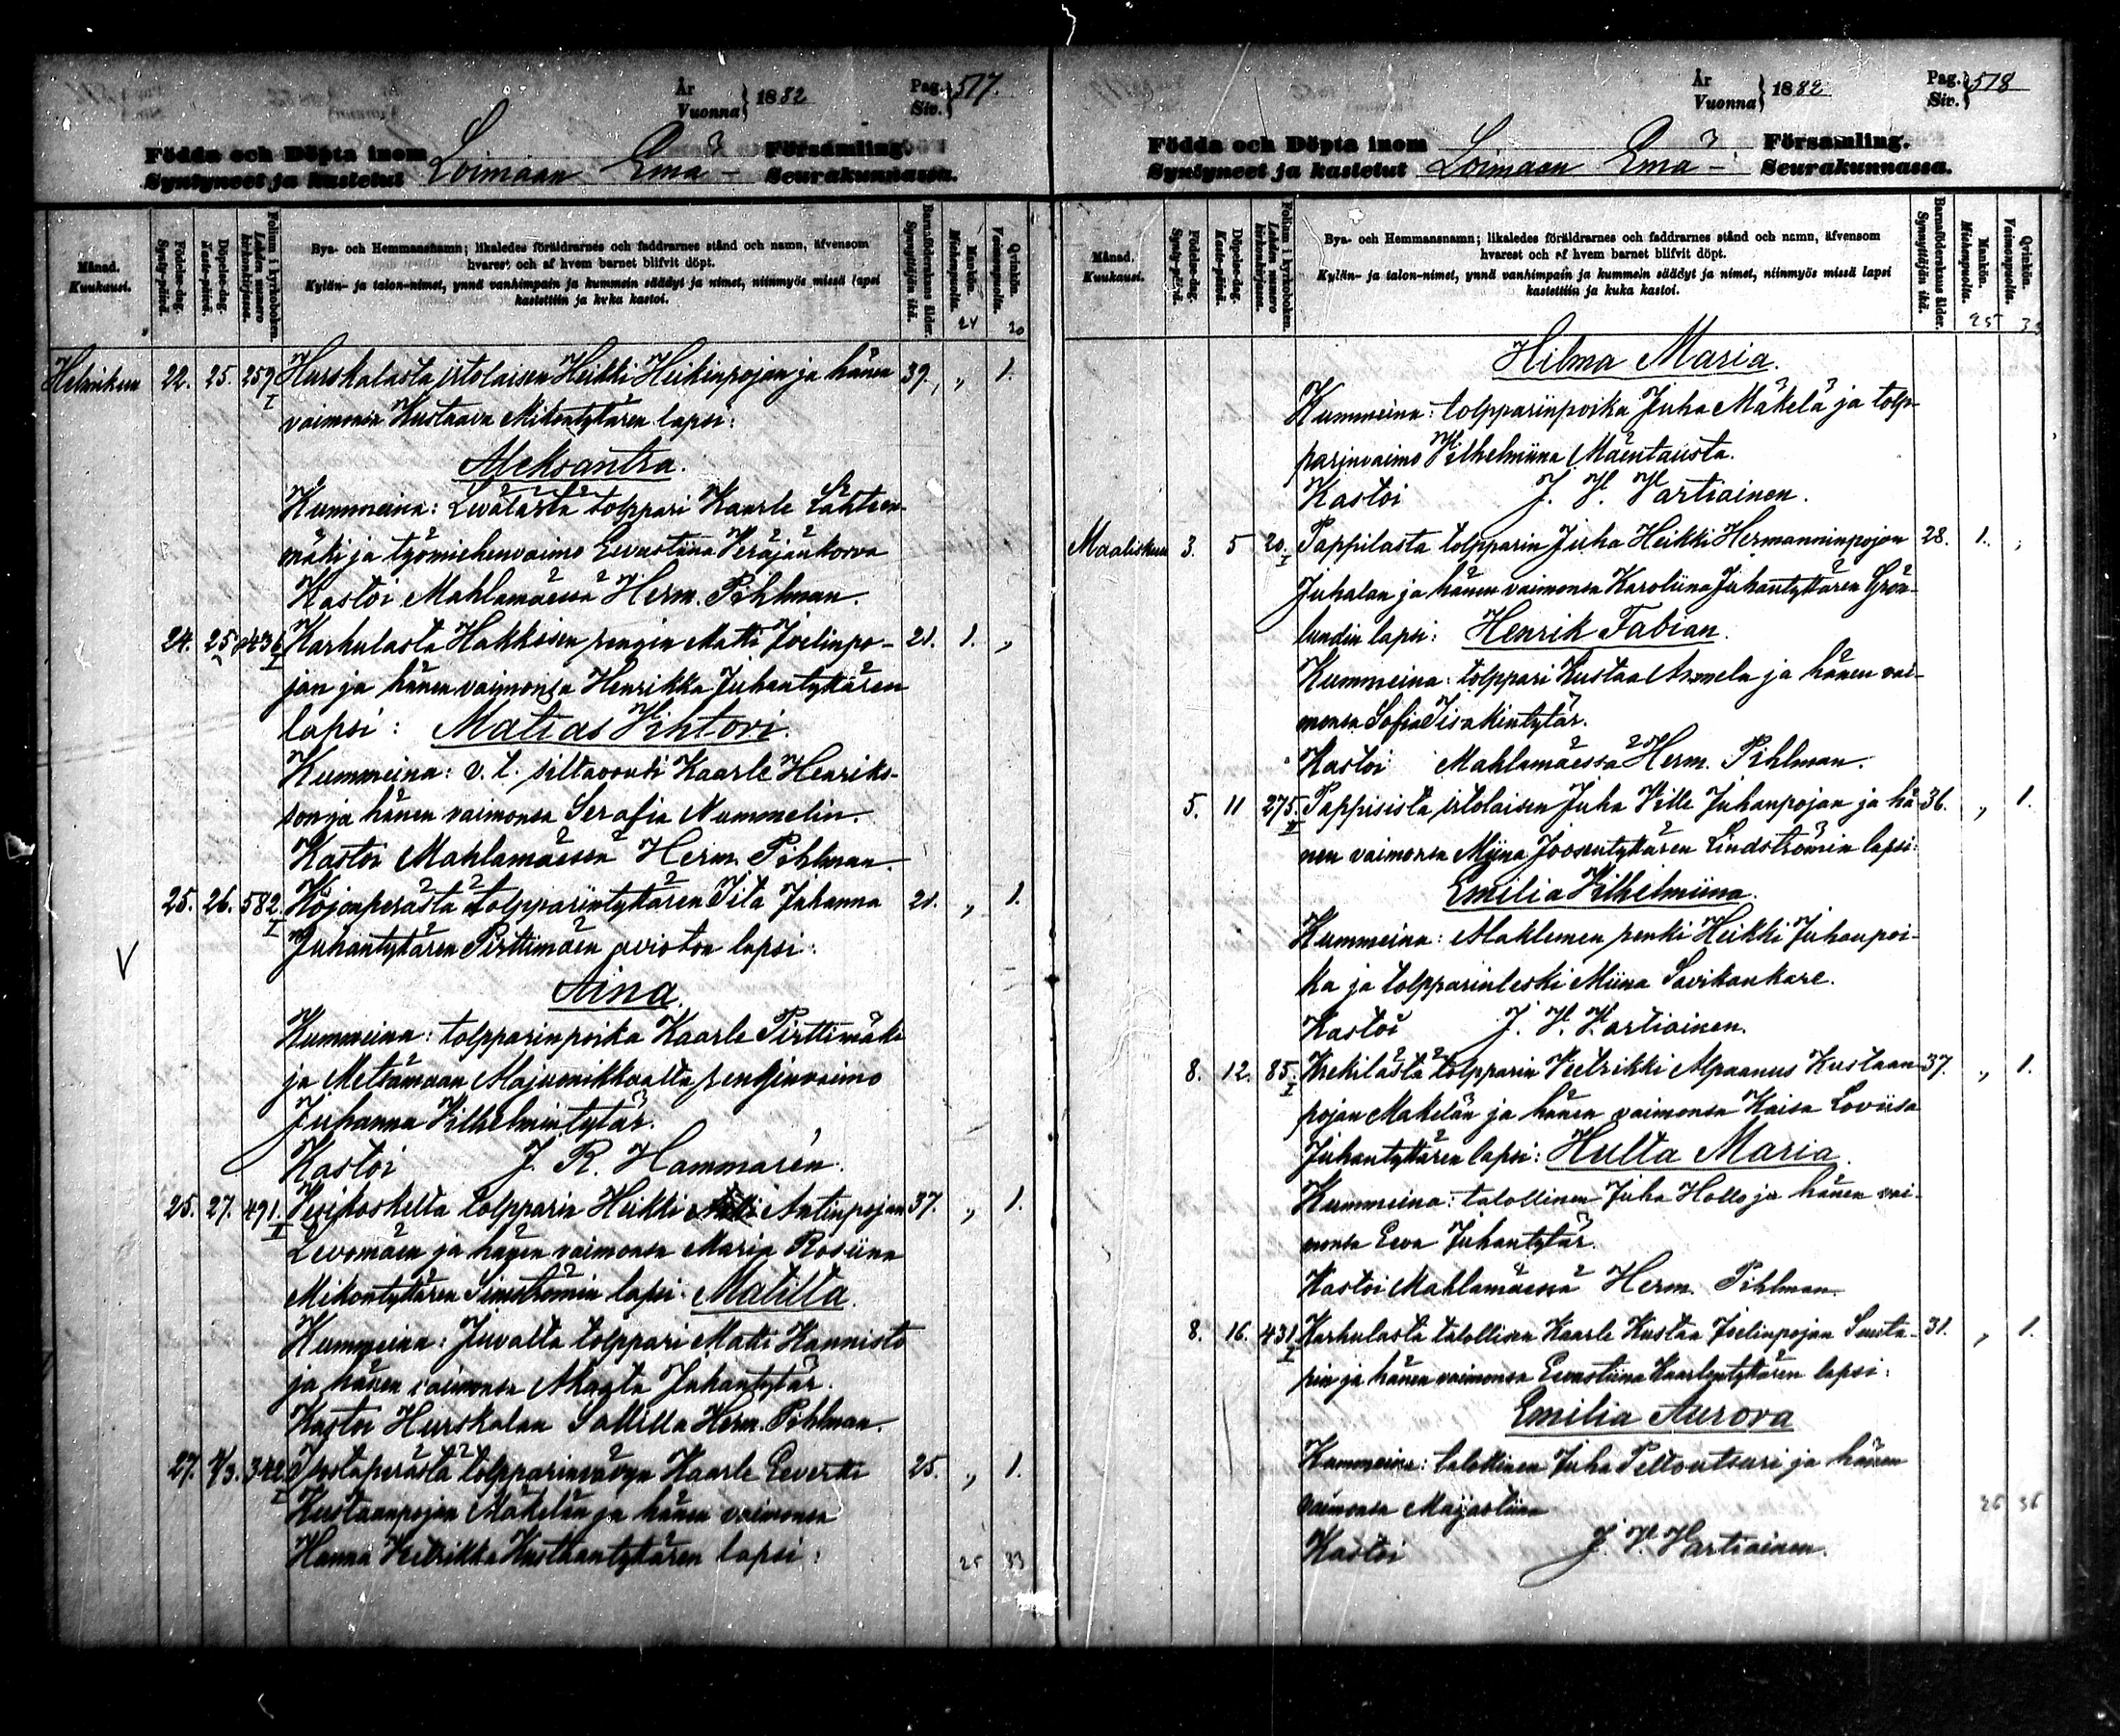 År
Vuonna } 1882
Pag.
Siv. } 517.
Födda och Döpta inom
Syntyneet ja kastetut Loimaan Emä- Församling.
Seurakunnassa.
Månad.
Kuukausi.
Födelse-dag.
Synty-päivä.
Döpelse-dag.
Kaste-päivä.
Folium i kyrkoboken.
Lehden numero kirkonkirjassa.
Bya- och Hemmansnamn; likaledes föräldrarnes och faddrarnes stånd och namn, äfvensom
hvarest och af hvem barnet blifvit döpt.
Kylän- ja talon-nimet, ynnä vanhimpain ja kummein säädyt ja nimet, niinmyös missä lapsi
kastettiin ja kuka kastoi.
Barnaföderskans ålder.
Synnyttäjän ikä.
Mankön.
Miehenpuolia.
Qvinkön.
Vaimonpuolia.
24 20
Helmikuu 22. 25. 259 I Hurskalasta irtolaisen Heikki Heikinpojan ja hänen 39. „ 1.
vaimonsa Kustaava Mikontyttären lapsi:
Aleksantra.
Kummeina: Levälästä tolppari Kaarle Lähteen-
mäki ja työmiehenvaimo Eevastiina Keräjänkorva
Kastoi Mahlamäessä Herm. Pihlman.
24. 25 436 I Karhulasta Hakkisen rengin Matti Joelinpo- 21. 1. „
jan ja hänen vaimonsa Henrikka Juhantyttären
lapsi: Matias Vihtori.
Kummeina: v. t. siltavouti Kaarle Henriks-
son ja hänen vaimonsa Serafia Nummelin.
Kastoi Mahlamäessä Herm. Pihlman.
25. 26. 582. I Köjonperästä tolpparintyttären Iita Juhanna 21. „ 1.
Juhantyttären Pirttimäen avioton lapsi:
Aina.
Kummeina: tolpparinpoika Kaarle Pirttimäki
ja Metsämaan Majuonikkaalta renginvaimo
Juhanna Vilhelmintytär.
Kastoi J. R. Hammarén.
25. 27. 491. I Vesikoskelta tolpparin Heikki Antinpojan 37. „ 1.
Levomäen ja hänen vaimonsa Maria Rosiina
Mikontyttären lapsi: Matilta.
Kummeina: Juvalta tolppari Matti Kannisto
ja hänen vaimonsa Akaata Juhantytär.
Kastoi Hurskalan Sallilla Herm. Pihlman.
27. 4/3. 342 I tolpparinvävyn Kaarle Eevertti 25. „ 1.
Kustaanpojan Mäkelän ja hänen vaimonsa
Hanna Vetrikka Kustaantyttären lapsi:
25 33
År
Vuonna } 1882
Pag.
Siv. } 518
Födda och Döpta inom
Syntyneet ja kastetut Loimaan Emä- Församling.
Seurakunnassa.
Månad.
Kuukausi.
Födelse-dag.
Synty-päivä.
Döpelse-dag.
Kaste-päivä.
Folium i kyrkoboken.
Lehden numero kirkonkirjassa.
Bya- och Hemmansnamn; likaledes föräldrarnes och faddrarnes stånd och namn, äfvensom
hvarest och af hvem barnet blifvit döpt.
Kylän- ja talon-nimet, ynnä vanhimpain ja kummein säädyt ja nimet, niinmyös missä lapsi
kastettiin ja kuka kastoi.
Barnaföderskans ålder.
Synnyttäjän ikä.
Mankön.
Miehenpuolia.
Qvinkön.
Vaimonpuolia.
25 33
Hilma Maria.
Kummeina: tolpparinpoika Juha Mäkelä ja tolp-
parinvaimo Vilhelmiina Mäentausta.
Kastoi J. V. Vartiainen.
Maaliskuu 3. 5 20. I Pappilasta tolpparin Juha Heikki Hermanninpojan 28. 1. „
Juhalan ja hänen vaimonsa Karoliina Juhantyttären Grön-
lundin lapsi: Henrik Fabian.
Kummeina: tolppari Kustaa Anmela ja hänen vai-
monsa Sofia Iisakintytär.
Kastoi Mahlamäessä Herm. Pihlman.
5. 11 275. II Pappisista irtolaisen Juha Ville Juhanpojan ja hä- 36. „ 1.
nen vaimonsa Miina Joosentyttären Lindströmin lapsi:
Emilia Vilhelmiina.
Kummeina: Mahlemen renki Heikki Juhanpoi-
ka ja tolpparinleski Miina Savikankare.
Kastoi J. V. Vartiainen.
8. 12. 85. I Krekilästä tolpparin Vietrikki Alpaanus Kustaan- 37. „ 1.
pojan Mäkelän ja hänen vaimonsa Kaisa Loviisa
Juhantyttären lapsi: Hulta Maria.
Kummeina: talollinen Juha Hollo ja hänen vai-
monsa Eeva Juhantytär.
Kastoi Mahlamäessä Herm. Pihlman.
8. 16. 431 I Karhulasta talollisen Kaarle Kustaa Joelinpojan Seusta- 31. „ 1.
pin ja hänen vaimonsa Eevastiina Kaarlentyttären lapsi:
Emilia Aurora
Kummeina: talollinen Juha Peltoutsuri ja hänen
vaimonsa Maijastiina
26 36
Kastoi J. V. Vartiainen.